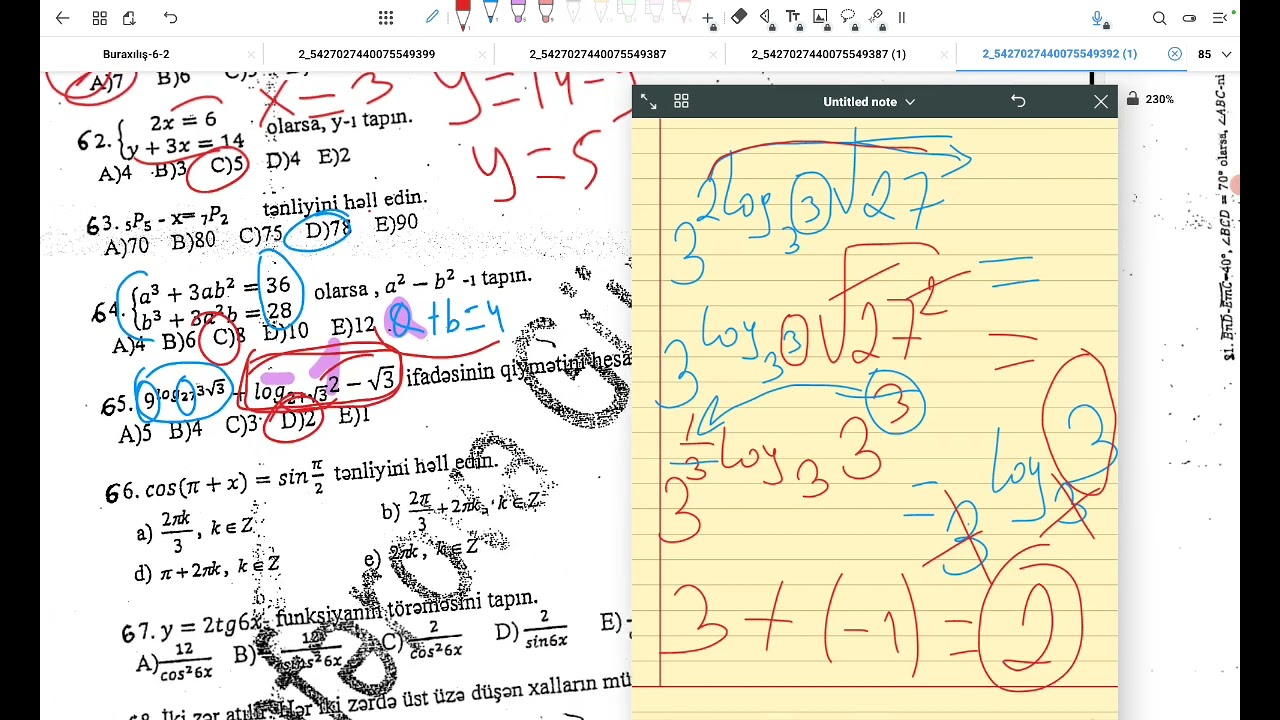 Buraxılış-6-2
2_5427027440075549399
2_5427027440075549387
2_5427027440075549387 (1)
2_5427027440075549392 (1)
85
230%
Untitled note
A)7 B)6
x = 3
62. {2x = 6
y + 3x = 14 olarsa, y-ı tapın.
A)4 B)3 C)5 D)4 E)2
y = 5
63. ₅P₅ - x= ₇P₂ tənliyini həll edin.
A)70 B)80 C)75 D)78 E)90
64. {a³ + 3ab² = 36
b³ + 3a²b = 28 olarsa , a² − b² -ı tapın.
A)4 B)6 C)8 D)10 E)12
a + b = 4
65. ifadəsinin qiymətini
A)5 B)4 C)3 D)2 E)1
66. cos(π + x) = sin π/2 tənliyini həll edin.
a) 2πk/3, k ∈ Z
b) 2π/3 + 2πk, k ∈ Z
d) π + 2πk, k ∈ Z
e) 2πk, k ∈ Z
67. y = 2tg6x funksiyanın törəməsini tapın.
A) 12/cos²6x B) 12/sin²6x C) 2/cos²6x D) 2/sin6x E)
68. İki zər atılır. Hər iki zərdə üst üzə düşən xalların
3^(2log₃ ³√27) =
3^(log₃ ³√27²) =
3^(1/3 log₃ 3³)
= 3^(log₃ 3)
3 + (-1) = 2